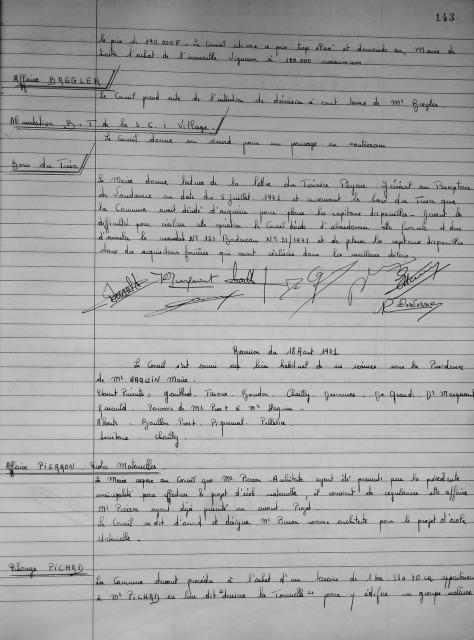 143
le prix de 190.000 F. Le Conseil estime ce prix trop élevé et demande au Maire de
traiter l'achat de l'immeuble Vigneron à 180.000 maximum.
Affaire BREGLER
Le Conseil prend acte de l'intention de démission à court terme de Mr Bregler
Alimentation B.T de la S.C.I Village.
Le Conseil donne son accord pour un passage en souterrain
Bons du Trésor
Le Maire donne lecture de la lettre du Trésorier Payeur Général au Percepteur
de en date du 5 Juillet 1971 et concernant les bons du Trésor que
la Commune avait décidé d'acquérir pour placer les capitaux disponibles. Devant les
difficultés pour réaliser cette opération le Conseil décide d'abandonner cette formule et donc
d'annuler le mandat N° 171 Bordereau N° 21/1971 et de placer les capitaux disponibles
dans des acquisitions foncières qui seront réalisées dans les meilleurs délais.
Réunion du 18 Aout 1971
Le Conseil s'est réuni au lieu habituel de ses séances sous la Présidence
de Mr HAQUIN Maire.
Etaient Présents : Gauthier. Taroux. Boudon. Chailly. De Grandi. Dr Marquant
Pouvoir de Mr Piret à Mr Haquin.
Absents. Piret. Piquemal. Pelletier.
Secrétaire Chailly.
Affaire PIERRON. Ecoles Maternelles.
Le Maire expose au Conseil que Mr Pierron. Architecte ayant été pressenti par la précédente
municipalité pour effectuer le projet d'école maternelle, il convient de régulariser cette affaire
Mr Pierron ayant déjà présenté un avant. Projet.
Le Conseil se dit d'accord et désigne Mr Pierron comme architecte pour le projet d'école
Maternelle.
Echange PICARD
La Commune devant procéder à l'achat d'un terrain de 1 ha 55a 70 ca appartenant
à Mr PICARD au lieu dit "derrière la Tournelle" pour y édifier un groupe scolaire